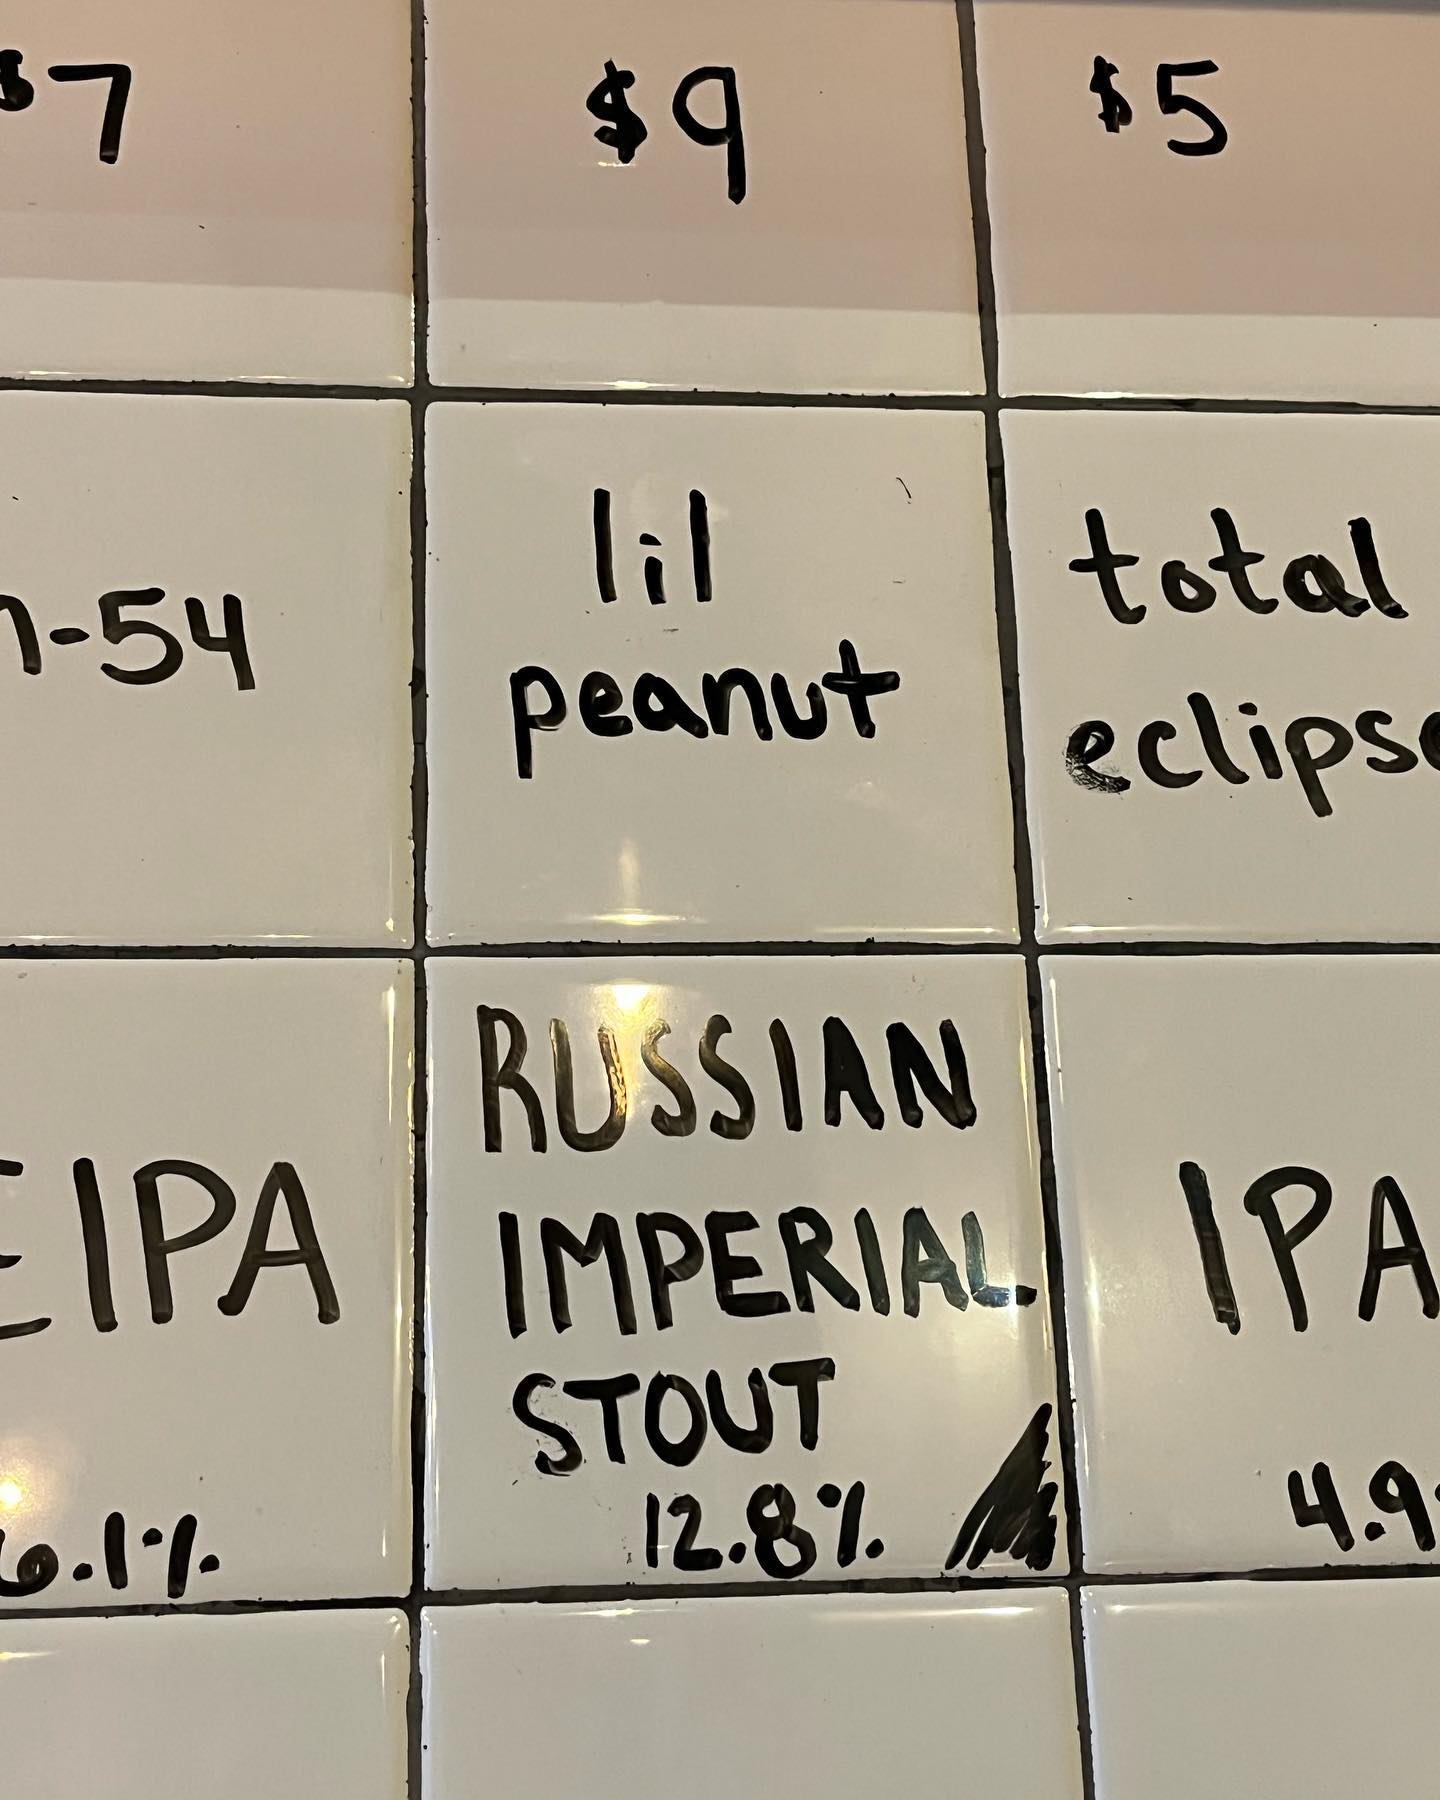 $7
$9
$5
-54
lil
peanut
total
eclipse
IPA
6.1%
RUSSIAN
IMPERIAL
STOUT
12.8%
IPA
4.9